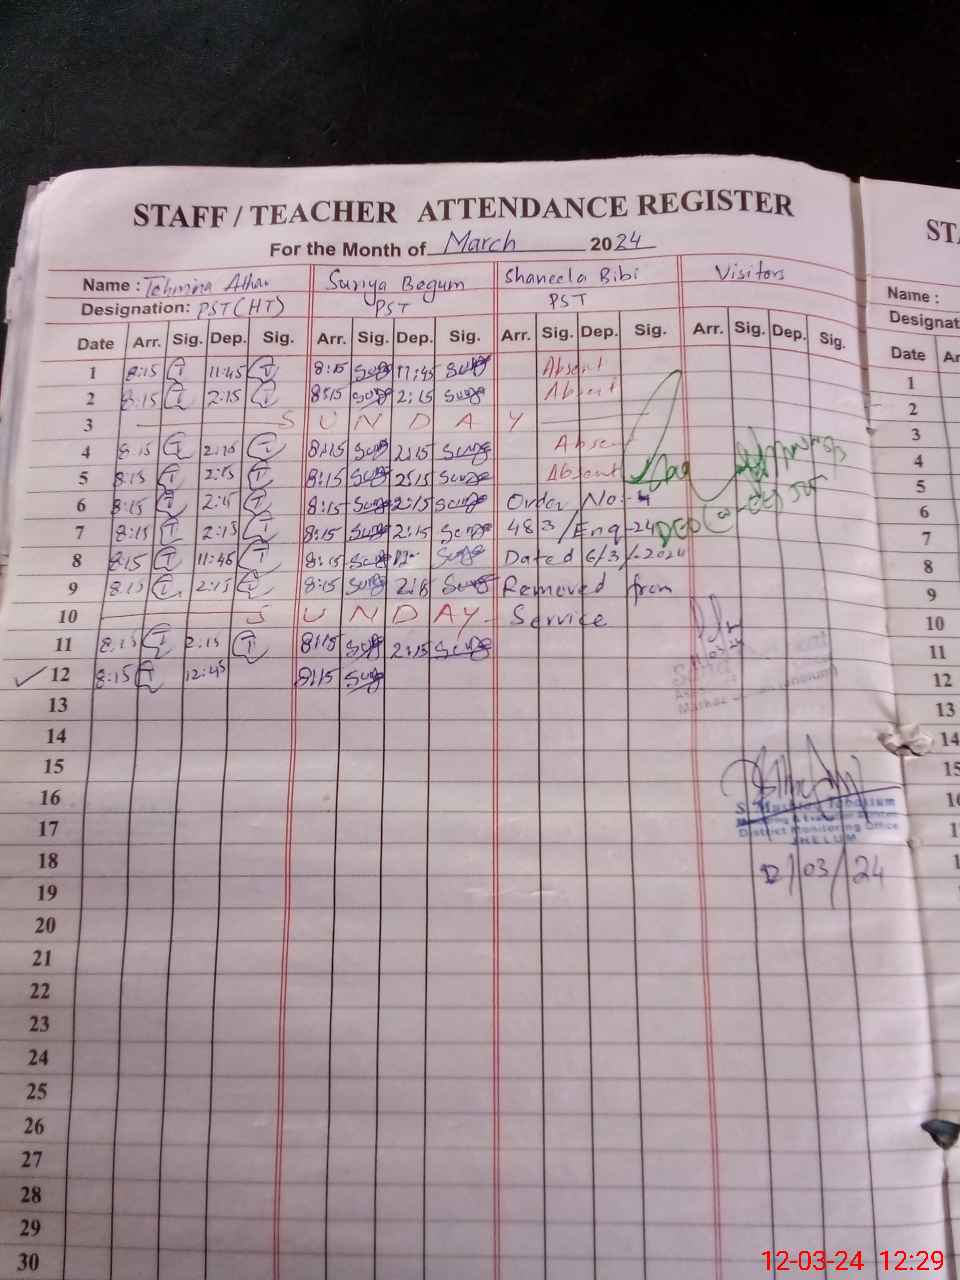 STAFF / TEACHER ATTENDANCE REGISTER
For the Month of March 2024
Name : Tehmina Athar Suriya Begum Shaneela Bibi Visitors
Designation: PST (HT) PST PST
Date Arr. Sig. Dep. Sig. Arr. Sig. Dep. Sig. Arr. Sig. Dep. Sig. Arr. Sig. Dep. Sig.
1 8:15 T 11:45 T 8:15 11:45 Absent
2 8:15 T 2:15 T 8:15 2:15 Absent
3 S U N D A Y
4 8:15 T 2:15 T 8:15 2:15 Absent
5 8:15 T 2:15 T 8:15 2:15 Absent
6 8:15 T 2:15 T 8:15 2:15 Order No-
7 8:15 T 2:15 T 8:15 2:15 483/Enq-24
8 8:15 T 11:45 T 8:15 Dated 6/3/2024
9 8:15 T 2:15 T 8:15 Removed from
10 S U N D A Y Service
11 8:15 T 2:15 T 8:15 2:15
12 8:15 T 12:45 8:15
13
14
15
16
17
District Monitoring Office
JHELUM
18
12/03/24
19
20
21
22
23
24
25
26
27
28
29
30
ST
Name :
Designat
Date Ar
1
2
3
4
5
6
7
8
9
10
11
12
13
14
15
12-03-24 12:29